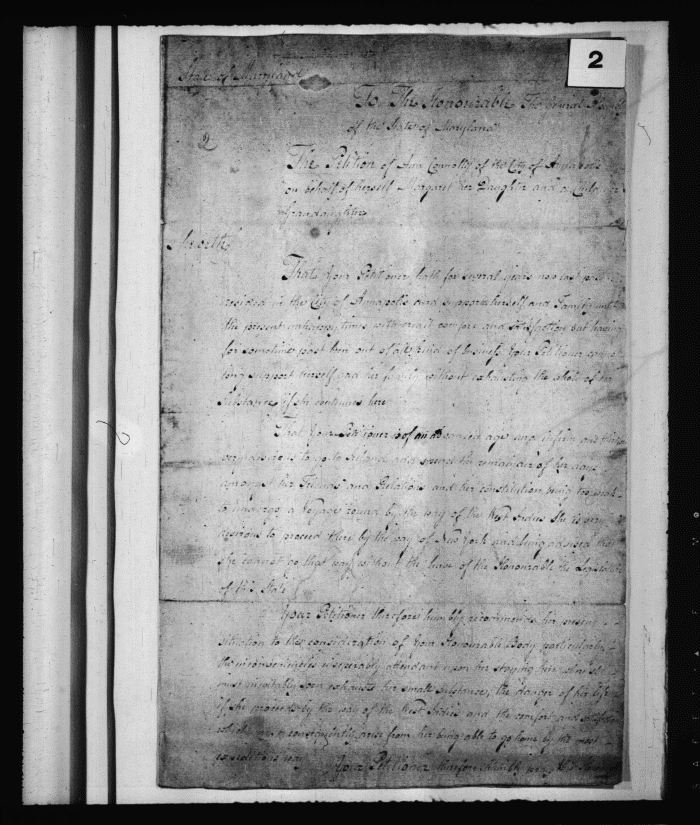 2
State of Maryland
To The Honourable The General Assembly
of the State of Maryland
2
The Petition of Ann Connolly of the City of Annapolis
on behalf of herself Margaret her Daughter and a Child her
Grandaughter
Sheweth
That Your Petitioner hath for several years now last past
resided in the City of Annapolis and supported herself and Family until
the present unhappy times with great comfort and satisfaction but having
for sometime past been out of all kind of business Your Petitioner cannot
long support herself and her family without exhausting the whole of her
Substance if she continues here
That Your Petitioner is of an advanced age and infirm and
very anxious to go to Ireland and spend the remainder of her days
amongst her Friends and Relations and her constitution being too weak
to undergo a Voyage round by the way of the West Indies She is very
desirous to proceed there by the way of New York and being advised that
she cannot go that way without the leave of the Honourable the Legislature
of this State
Your Petitioner therefore humbly recommends her present
situation to the consideration of Your Honourable Body particularly
the inconveniencies inseperably attendant upon her staying here which
must inevitably soon exhaust her small substance, the danger of her life
if she proceeds by the way of the West Indies and the comfort and satisfaction
which must consequently arise from her being able to go home by the most
expeditious way Your Petitioner therefore humbly prays